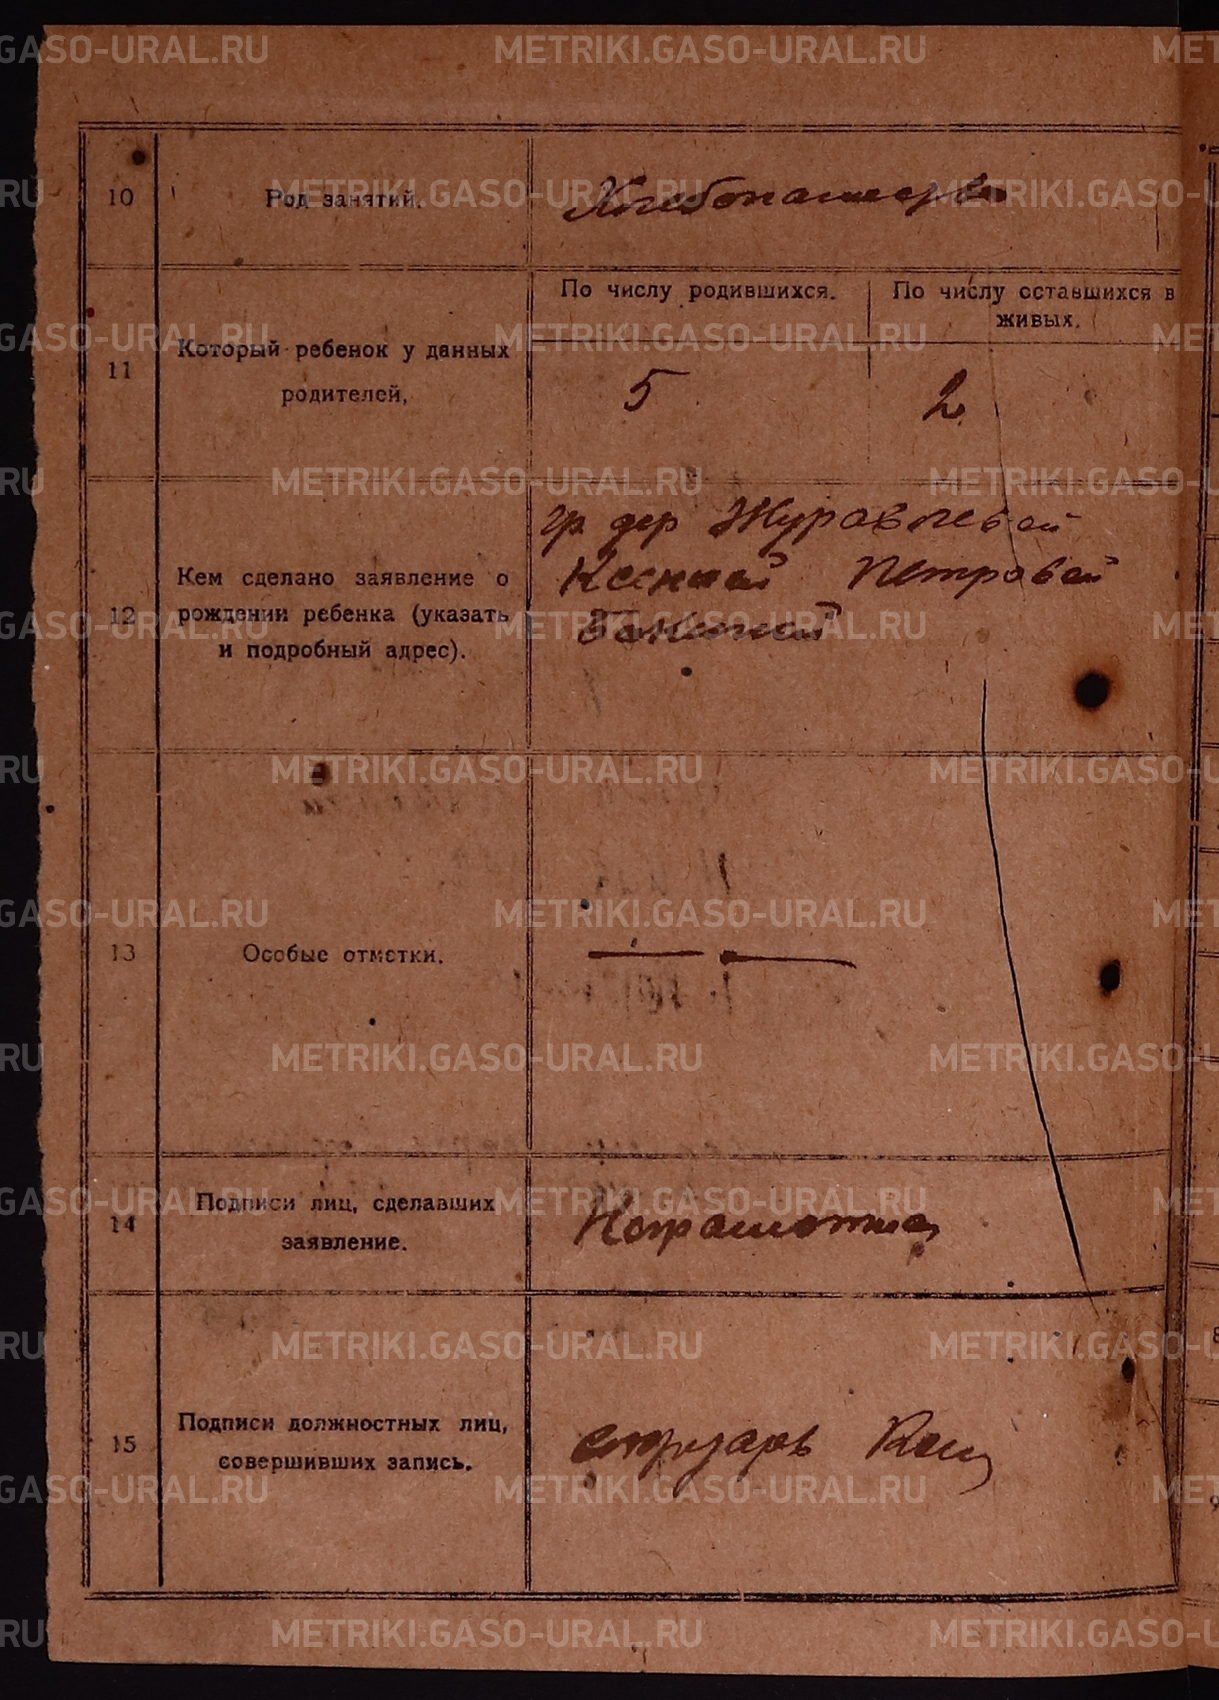 10
Род занятий.
Хлебопашеством
11
Который ребенок у данных
родителей,
По числу родившихся.
По числу оставшихся в
живых.
5
2
12
Кем сделано заявление о
рождении ребенка (указать
и подробный адрес).
гр. дер Журавлевой
Ксенией Петровой
13
Особые отметки.
14
Подписи лиц, сделавших
заявление.
Неграмотна
15
Подписи должностных лиц,
совершивших запись.
METRIKI.GASO-URAL.RU